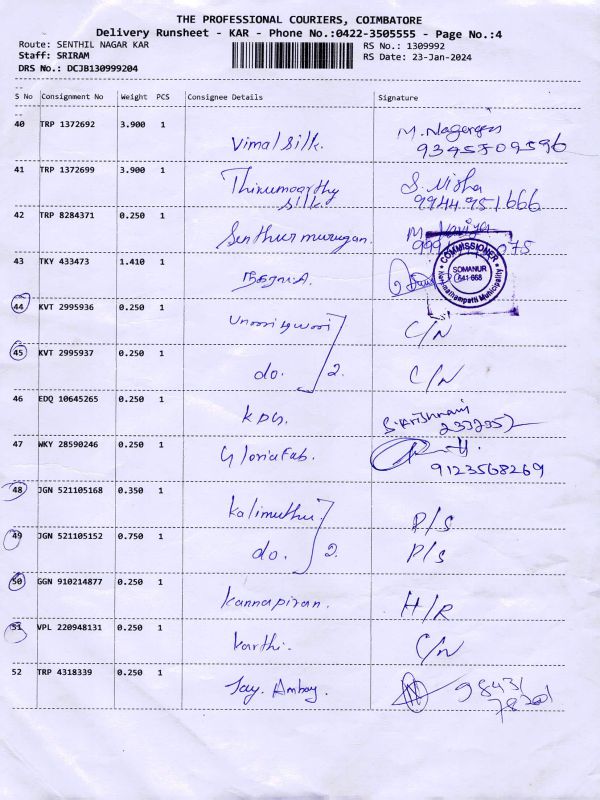 THE PROFESSIONAL COURIERS, COIMBATORE
Delivery Runsheet - KAR - Phone No.:0422-3505555 - Page No.:4
Route: SENTHIL NAGAR KAR
RS No.: 1309992
Staff: SRIRAM
RS Date: 23-Jan-2024
DRS No.: DCJB130999204
S No Consignment No Weight PCS Consignee Details Signature
40 TRP 1372692 3.900 1 Vimal silk. M. Nagaraj
9345809596
41 TRP 1372699 3.900 1 Thirumoorthy silk S. Nisha
9944951666
42 TRP 8284371 0.250 1 Senthur murugan. M. Kaviya
43 TKY 433473 1.410 1
COMMISSIONER
SOMANUR
641-668
Municipality
44 KVT 2995936 0.250 1 C/N
45 KVT 2995937 0.250 1 do. 2. C/N
46 EDQ 10645265 0.250 1 KPG. S.Krishnani
47 WKY 28590246 0.250 1 Gloria Fab.
9123568269
48 JGN 521105168 0.350 1 Kalimuthu P/S
49 JGN 521105152 0.750 1 do. 2. P/S
50 GGN 910214877 0.250 1 Kannapiran. H/R
51 VPL 220948131 0.250 1 Karthi. C/N
52 TRP 4318339 0.250 1 Jay. Ambay. 98431